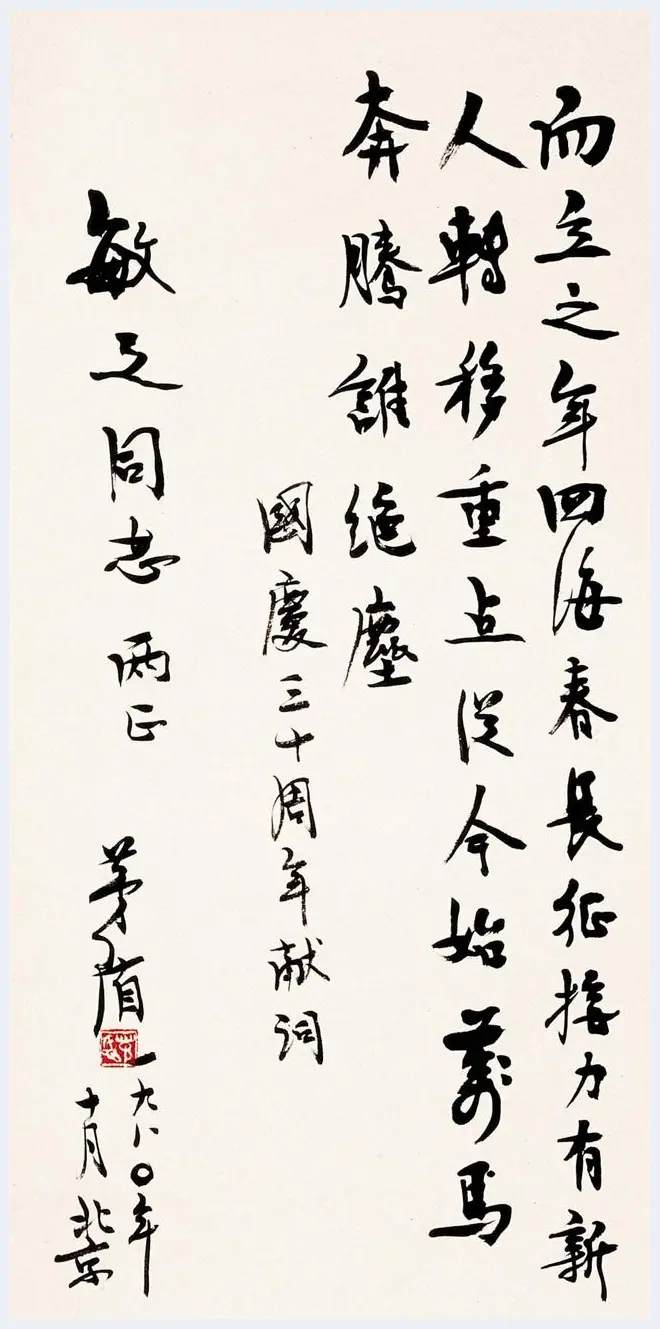 而立之年四海春長征接力有新
人轉移重点從今始萬馬
奔騰誰絕塵
國慶三十周年献词
敏之同志 两正
茅盾
一九八〇年
十月北京